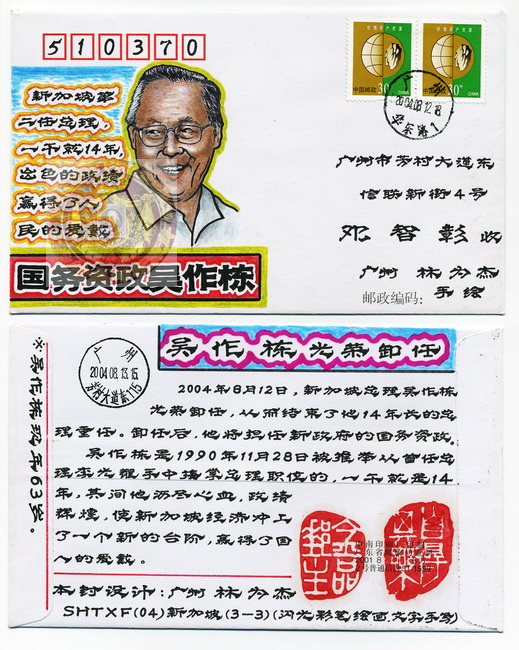 510370
新加坡第
二任总理,
一干就14年,
出色的政绩
赢得了人
民的爱戴
国务资政吴作栋
中国邮政 30分 CHINA
中国邮政 30分 CHINA
广州
2004.08.12.18
广州市芳村大道东
信联新街4号
邓智彰收
广州 林为杰
手绘
邮政编码:
吴作栋光荣卸任
广州
2004.08.13.15
芳村大道东115
※吴作栋现年63岁。
2004年8月12日,新加坡总理吴作栋
光荣卸任,从而结束了他14年长的总
理重任。卸任后,他将担任新政府的国务资政。
吴作栋是1990年11月28日被推举从首任总
理李光耀手中接掌总理职位的,一干就是14
年,其间他沥尽心血,政绩
辉煌,使新加坡经济冲上
了一个新的台阶,赢得了国
人的爱戴。
本封设计:广州 林为杰
SHTXF(04)新加坡(3-3)(闪光彩笔绘画.文字手写)